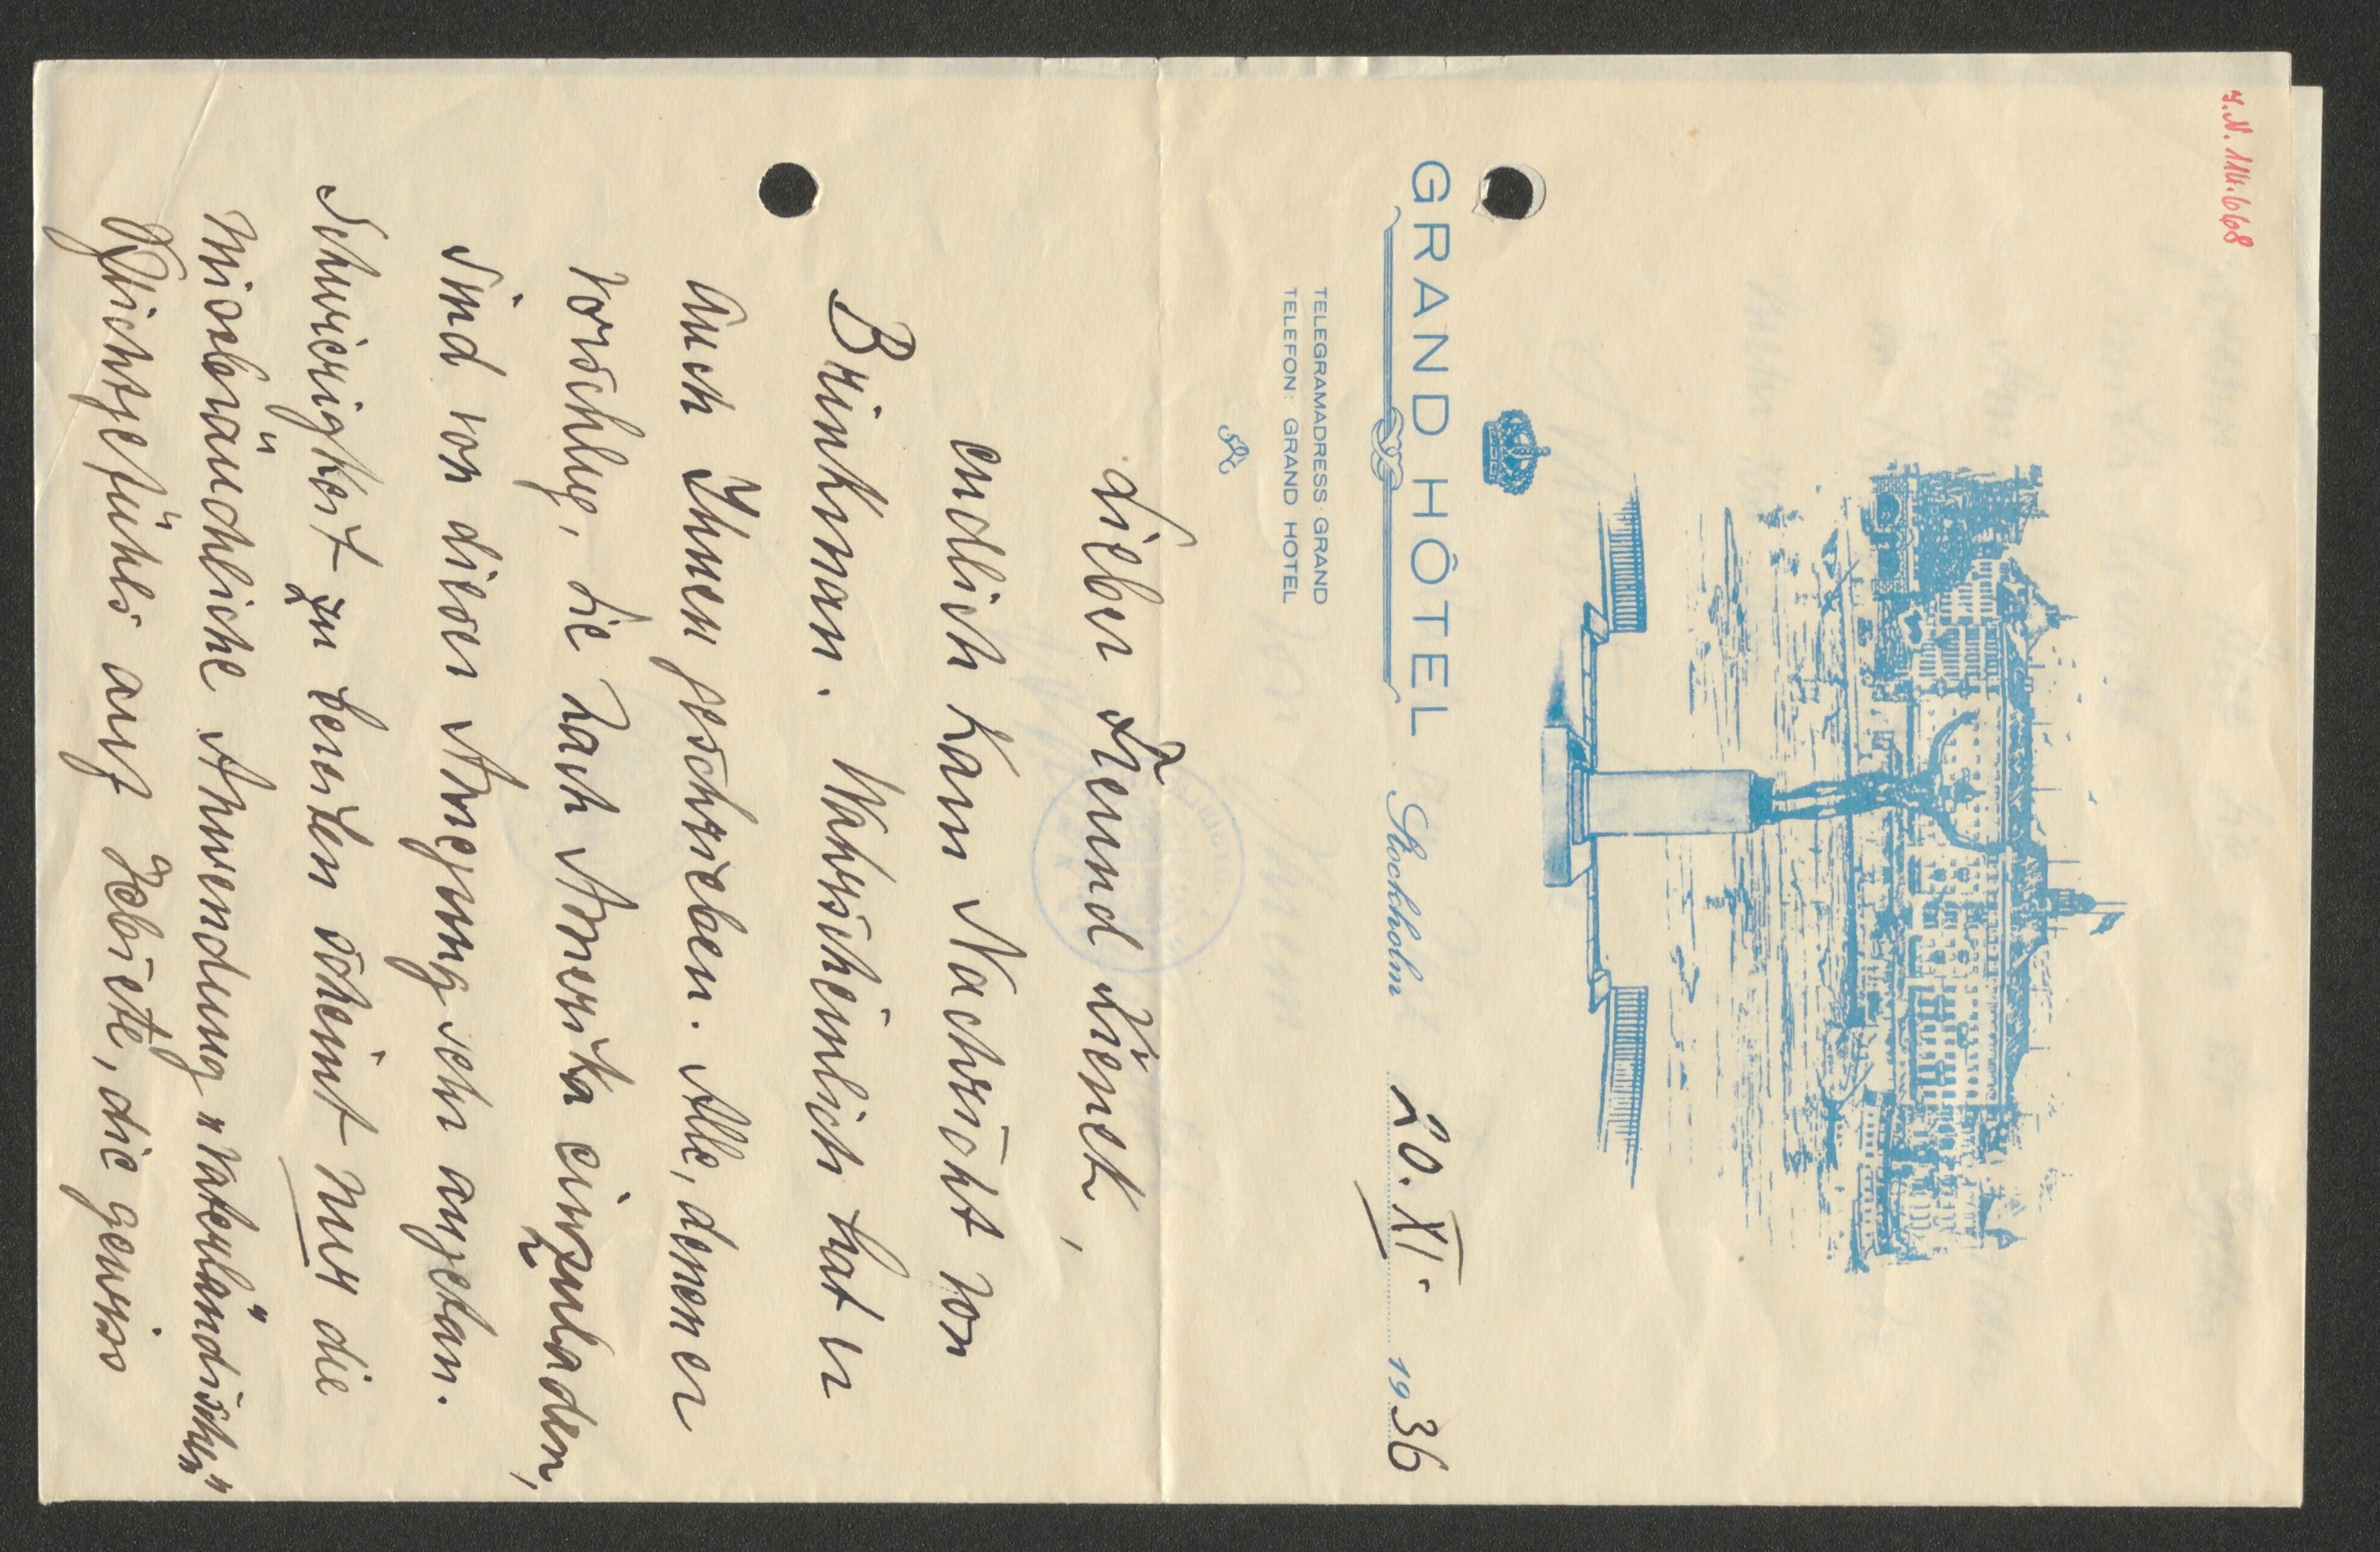 I.N. 114.668
GRAND HÔTEL Stockholm 20. XI. 1936
TELEGRAMADRESS: GRAND
TELEFON: GRAND HOTEL
Lieber Freund Kienek,
endlich kam Nachricht von
Brinkman. Wahrscheinlich hat er
auch Ihnen geschrieben. Alle, denen er
vorschlug, Sie nach Amerika einzuladen,
sind von dieser Anregung sehr angetan.
Schwierigkeit zu bereiten scheint nur die
missbräuchliche Anwendung „vaterländischen"
Pflichtgefühls auf Gebiete, die gewiss